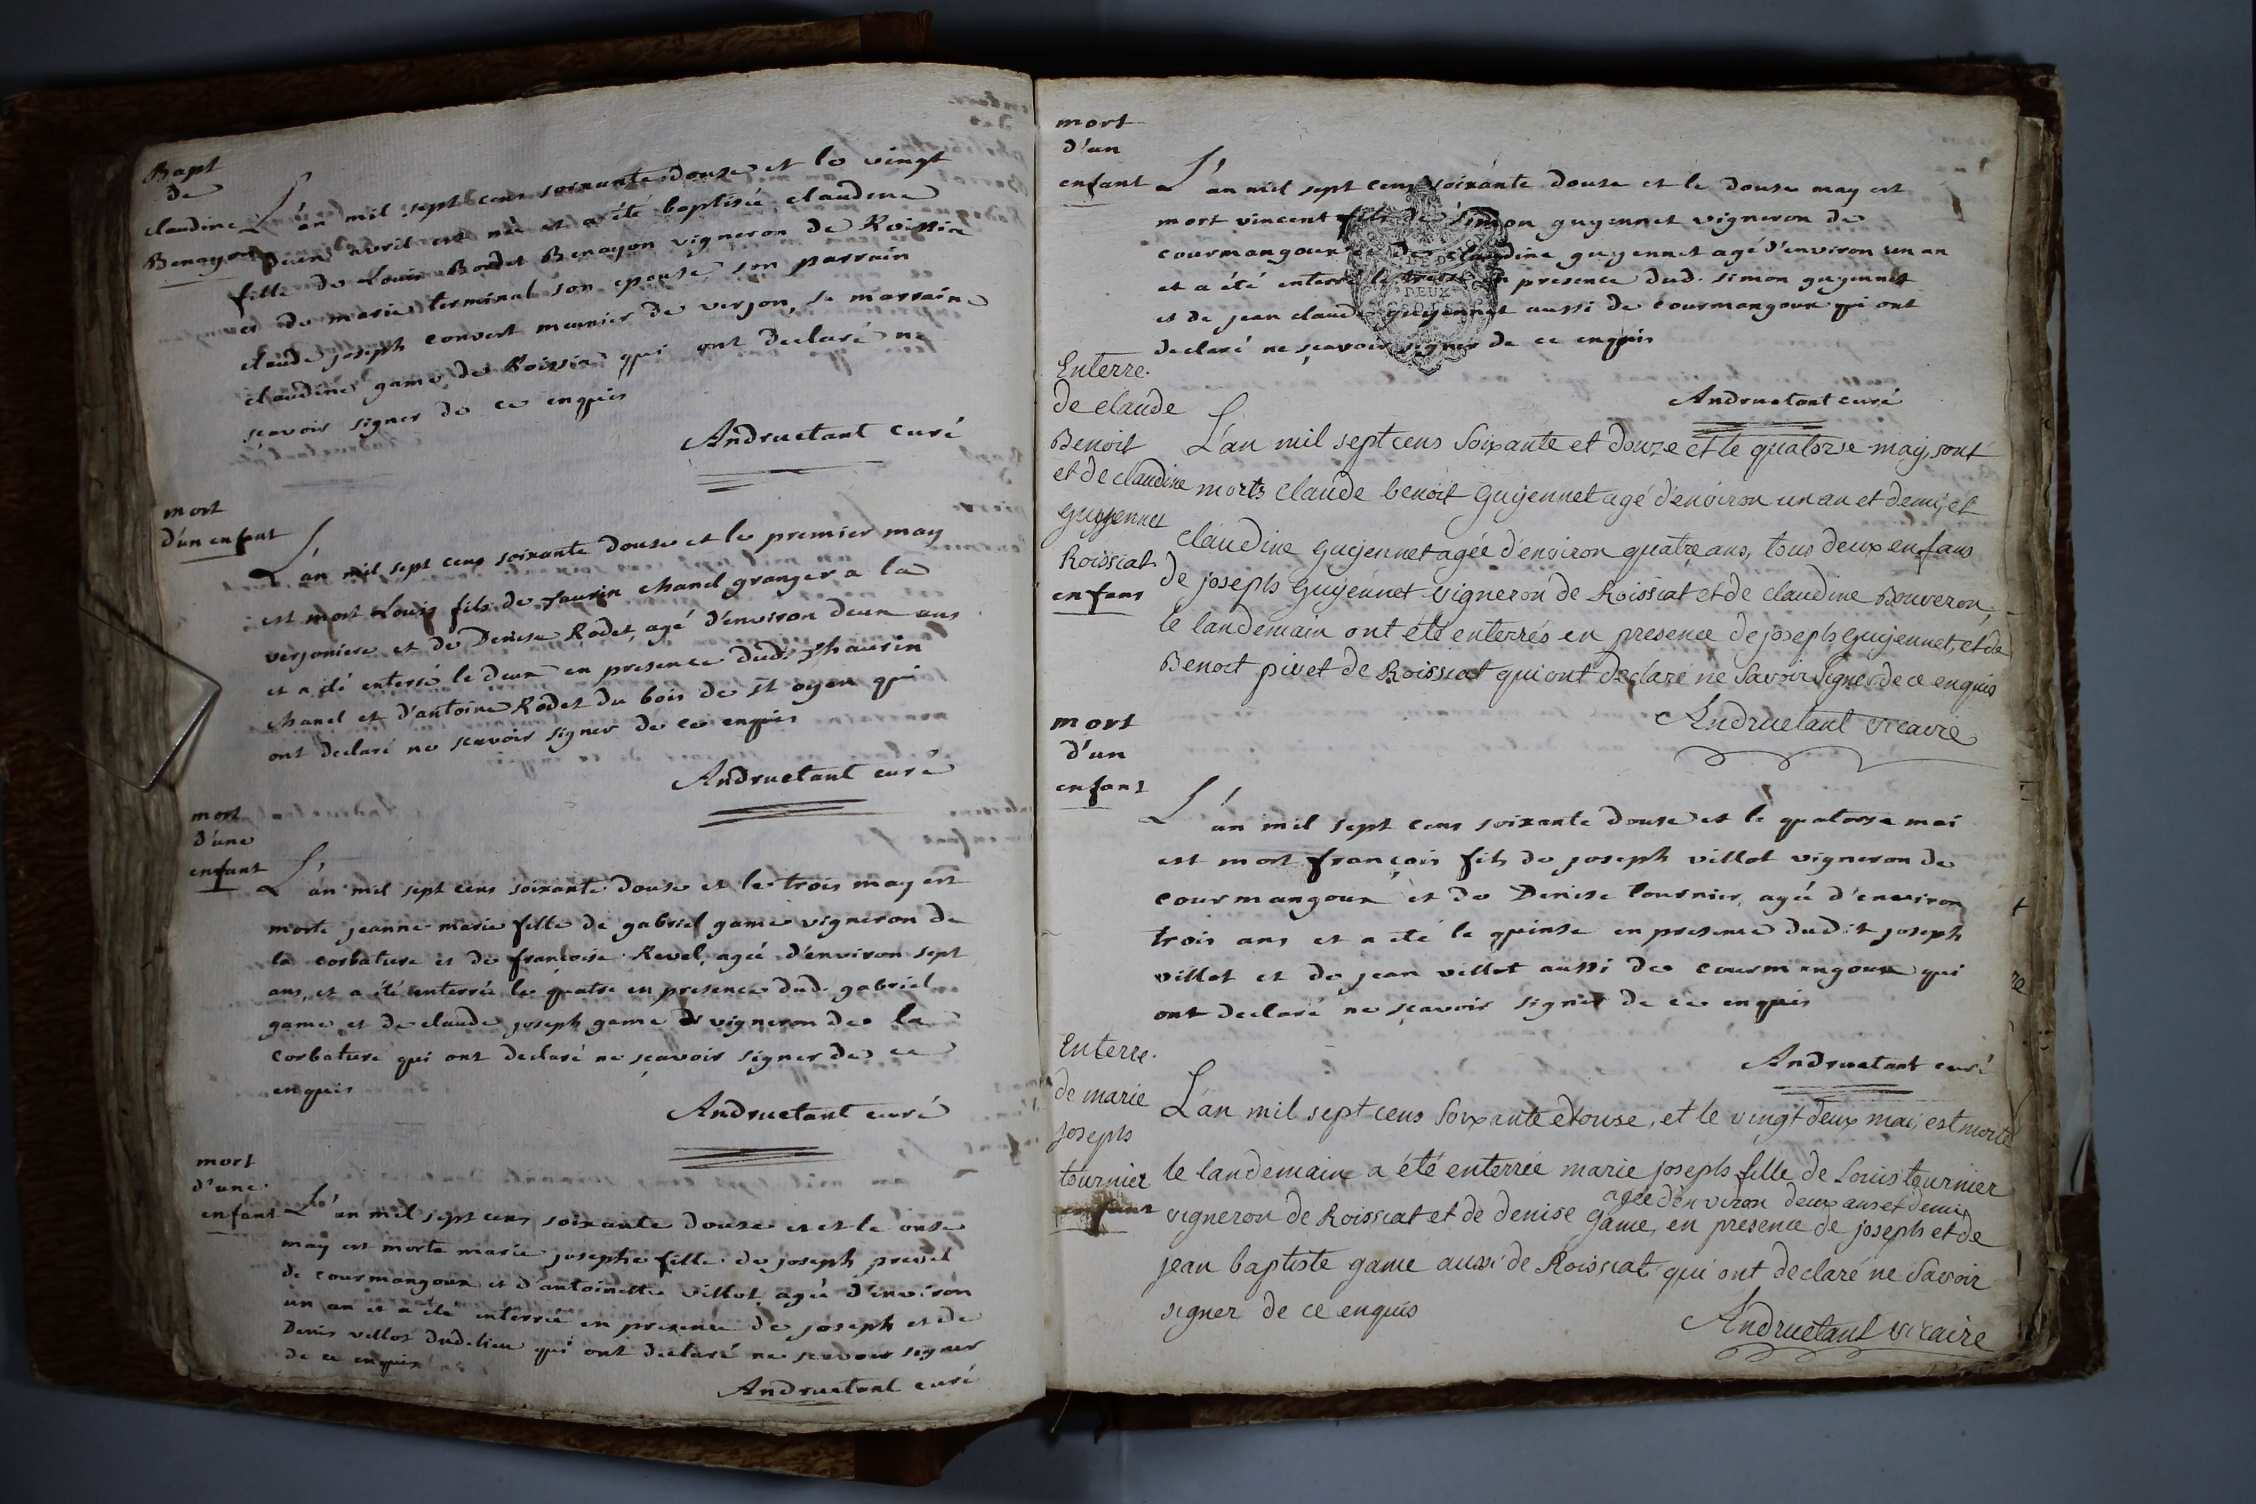 Bapt
de
claudine
Benayon
L'an mil sept cens soixante douze et le vingt
deux avril est née et a été baptisée claudine
fille de Louis Bodet Benayon vigneron de Roissia
et de marie terminal son epouse, son parrain
claude joseph convert meunier de verjon, sa marraine
claudine game de Roissia qui ont declaré ne
sçavoir signer de ce enquis
Andruetant curé
mort
d'un enfant
L'an mil sept cens soixante douse et le premier may
est mort Louis fils de Taurin chanel granger a la
verjoniere et de Denise Rodet, agé d'environ deux ans
et a été enterré le deux en presence dud. Thaurin
chanel et d'antoine Rodet du bois de st oyen qui
ont declaré ne scavoir signer de ce enquis
Andruetant curé
mort
d'une
enfant
L'an mil sept cens soixante douse et le trois may est
morte jeanne marie fille de gabriel game vigneron de
la corbature et de françoise Revel, agée d'environ sept
ans, et a été enterrée le quatre en presence dud. gabriel
game et de claude joseph game vigneron de la
corbature qui ont declaré ne sçavoir signer de ce
enquis
Andruetant curé
mort
d'une
enfant
L'an mil sept cens soixante douse et et le onse
may est morte marie josephe fille de joseph prevel
de courmangoux et d'antoinette villot agée d'environ
un an et a ete enterrée en presence de joseph et de
Denis villot dudelieu qui ont declaré ne scavoir signer
de ce enquis
Andruetant curé
mort
d'un
enfant
L'an mil sept cens soixante douse et le douse may est
mort vincent fils de Simon guyennet vigneron de
courmangoux et de claudine guyennet agé d'environ un an
et a été enterré le treise en presence dud. simon guyennet
et de jean claude guyennet aussi de courmangoux qui ont
declaré ne sçavoir signer de ce enquis
DEUX
Andruetant curé
Enterre.
de claude
Benoit
et de claudine
guyennet
Roissiat
enfans
L'an mil sept cens Soixante et douze et le quatorze may, sont
morts claude benoit Guyennet agé d'environ un an et demi, et
claudine Guyennet agée d'environ quatre ans, tous deux enfans
de joseph Guyennet vigneron de Roissiat et de claudine Bouveron,
le landemain ont été enterrés en presence de joseph Guyennet, et de
Benoit pivet de Roissiat qui ont declaré ne Savoir Signer de ce enquis
Andruetant vicaire
mort
d'un
enfant
L'an mil sept cens soixante douse et le quatorse mai
est mort françois fils de joseph villot vigneron de
courmangoux et de Denise tournier, agée d'environ
trois ans et a eté le quinse en presence dudit joseph
villot et de jean villot aussi de courmangoux qui
ont declaré ne sçavoir signer de ce enquis
Andruetant curé
Enterre.
de marie
joseph
tournier
enfant
L'an mil sept cens Soixante et douse, et le vingt deux mai, est morte
le landemain a été enterrée marie joseph fille de Louis tournier
agée d'environ deux ans et demi
vigneron de Roissiat et de denise game, en presence de joseph et de
jean baptiste game aussi de Roissiat qui ont declaré ne Savoir
signer de ce enquis
Andruetant vicaire